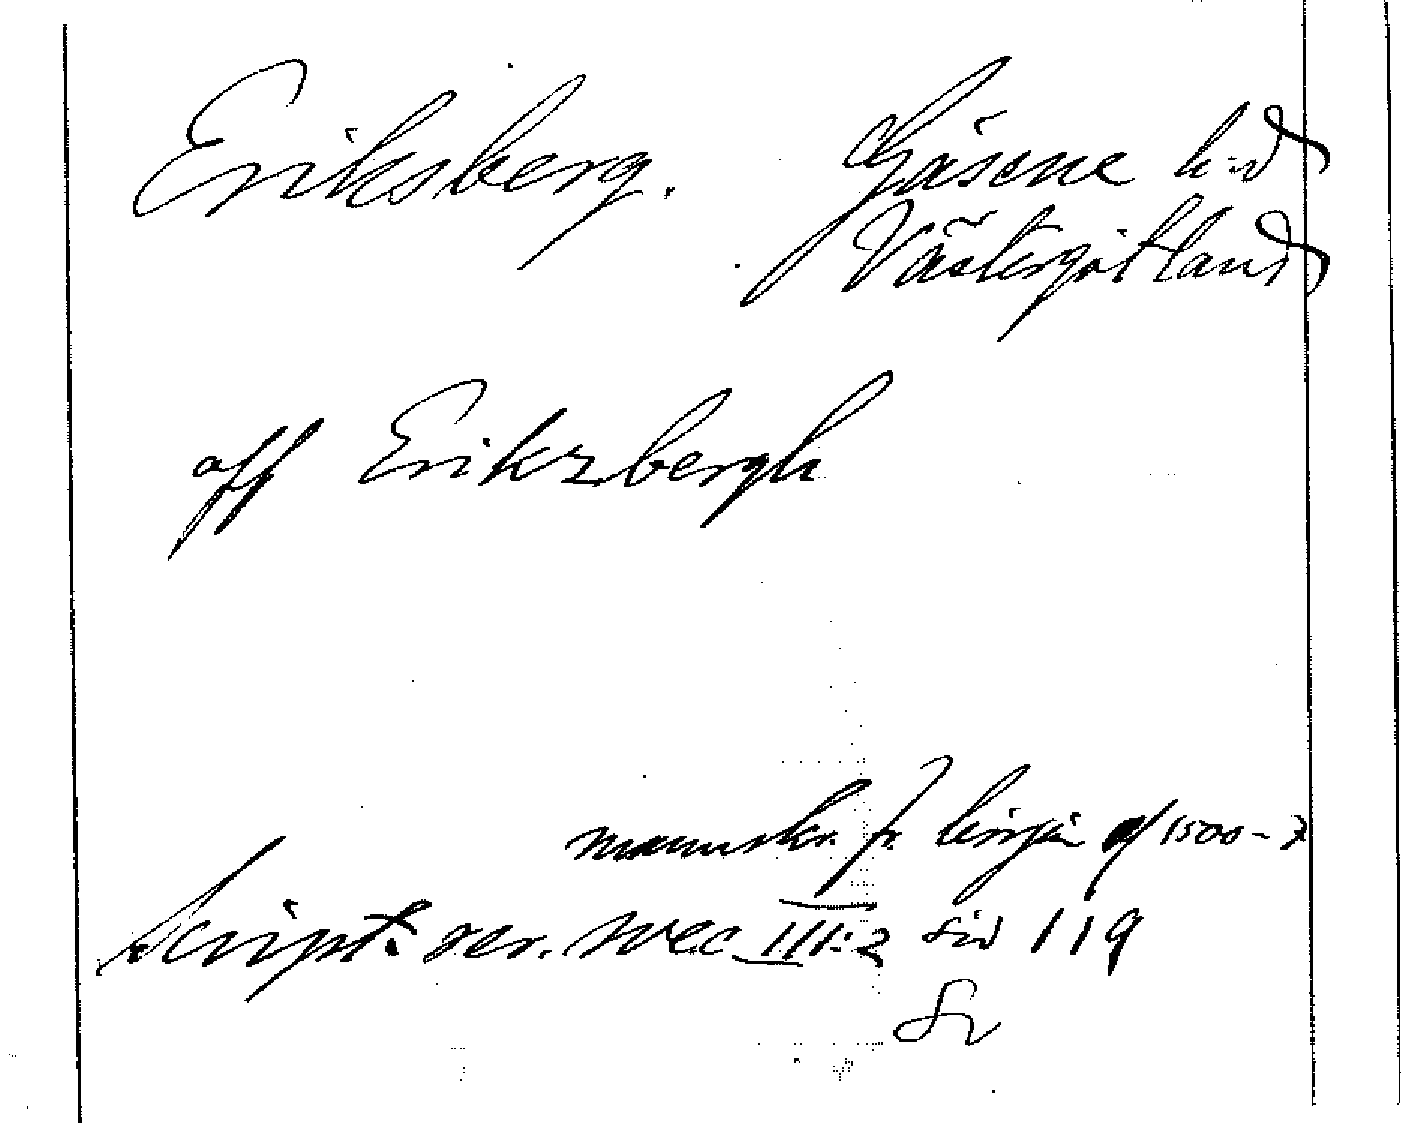 Eriksberg. Gäsene h-d
Västergötland
aff Erikzbergh
manuskr. fr. början af 1500-t
Script. rer. svec III:2 sid 119